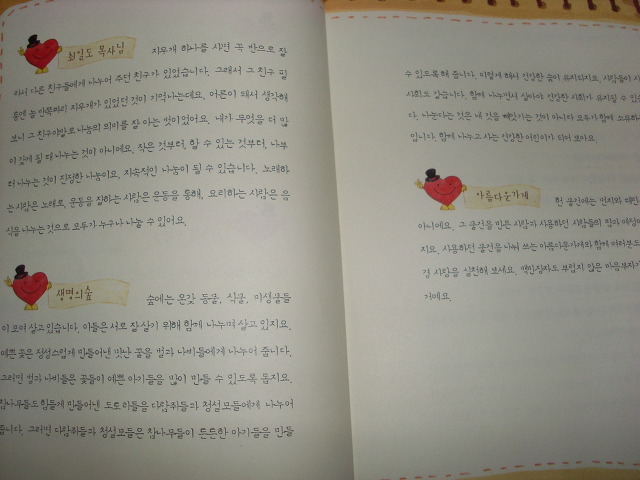 최일도 목사님
지우개 하나를 사면 꼭 반으로 잘
라서 다른 친구들에게 나누어 주던 친구가 있었습니다. 그래서 그 친구 필
통엔 늘 반쪽짜리 지우개가 있었던 것이 기억나는데요. 어른이 돼서 생각해
보니 그 친구야말로 나눔의 의미를 잘 아는 벗이었어요. 내가 무엇을 더 많
이 갖게 될 때 나누는 것이 아니에요. 작은 것부터, 할 수 있는 것부터, 나부
터 나누는 것이 진정한 나눔이요, 지속적인 나눔이 될 수 있습니다. 노래하
는 사람은 노래로, 운동을 잘하는 사람은 운동을 통해, 요리하는 사람은 음
식을 나누는 것으로 모두가 누구나 나눌 수 있어요.
생명의 숲
숲에는 온갖 동물, 식물, 미생물들
이 모여 살고 있습니다. 이들은 서로 잘 살기 위해 함께 나누며 살고 있지요.
예쁜 꽃은 정성스럽게 만들어낸 맛난 꿀을 벌과 나비들에게 나누어 줍니다.
그러면 벌과 나비들은 꽃들이 예쁜 아기들을 많이 만들 수 있도록 돕지요.
참나무들도 힘들게 만들어낸 도토리들을 다람쥐들과 청설모들에게 나누어
줍니다. 그러면 다람쥐들과 청설모들은 참나무들이 튼튼한 아기들을 만들
수 있도록 해 줍니다. 이렇게 해서 건강한 숲이 유지되지요. 사람들이 사
사회도 같습니다. 함께 나누면서 살아야 건강한 사회가 유지될 수 있습
다. 나눈다는 것은 내 것을 빼앗기는 것이 아니라 모두가 함께 소유하
입니다. 함께 나누고 사는 건강한 어린이가 되어 보아요.
아름다운가게
헌 물건에는 먼지와 때만
아니에요. 그 물건을 만든 사람과 사용하던 사람들의 땀과 애정이
지요. 사용하던 물건을 나눠 쓰는 아름다운가게와 함께 여러분도
경 사랑을 실천해 보세요. 백만장자도 부럽지 않은 마음부자가
거예요.